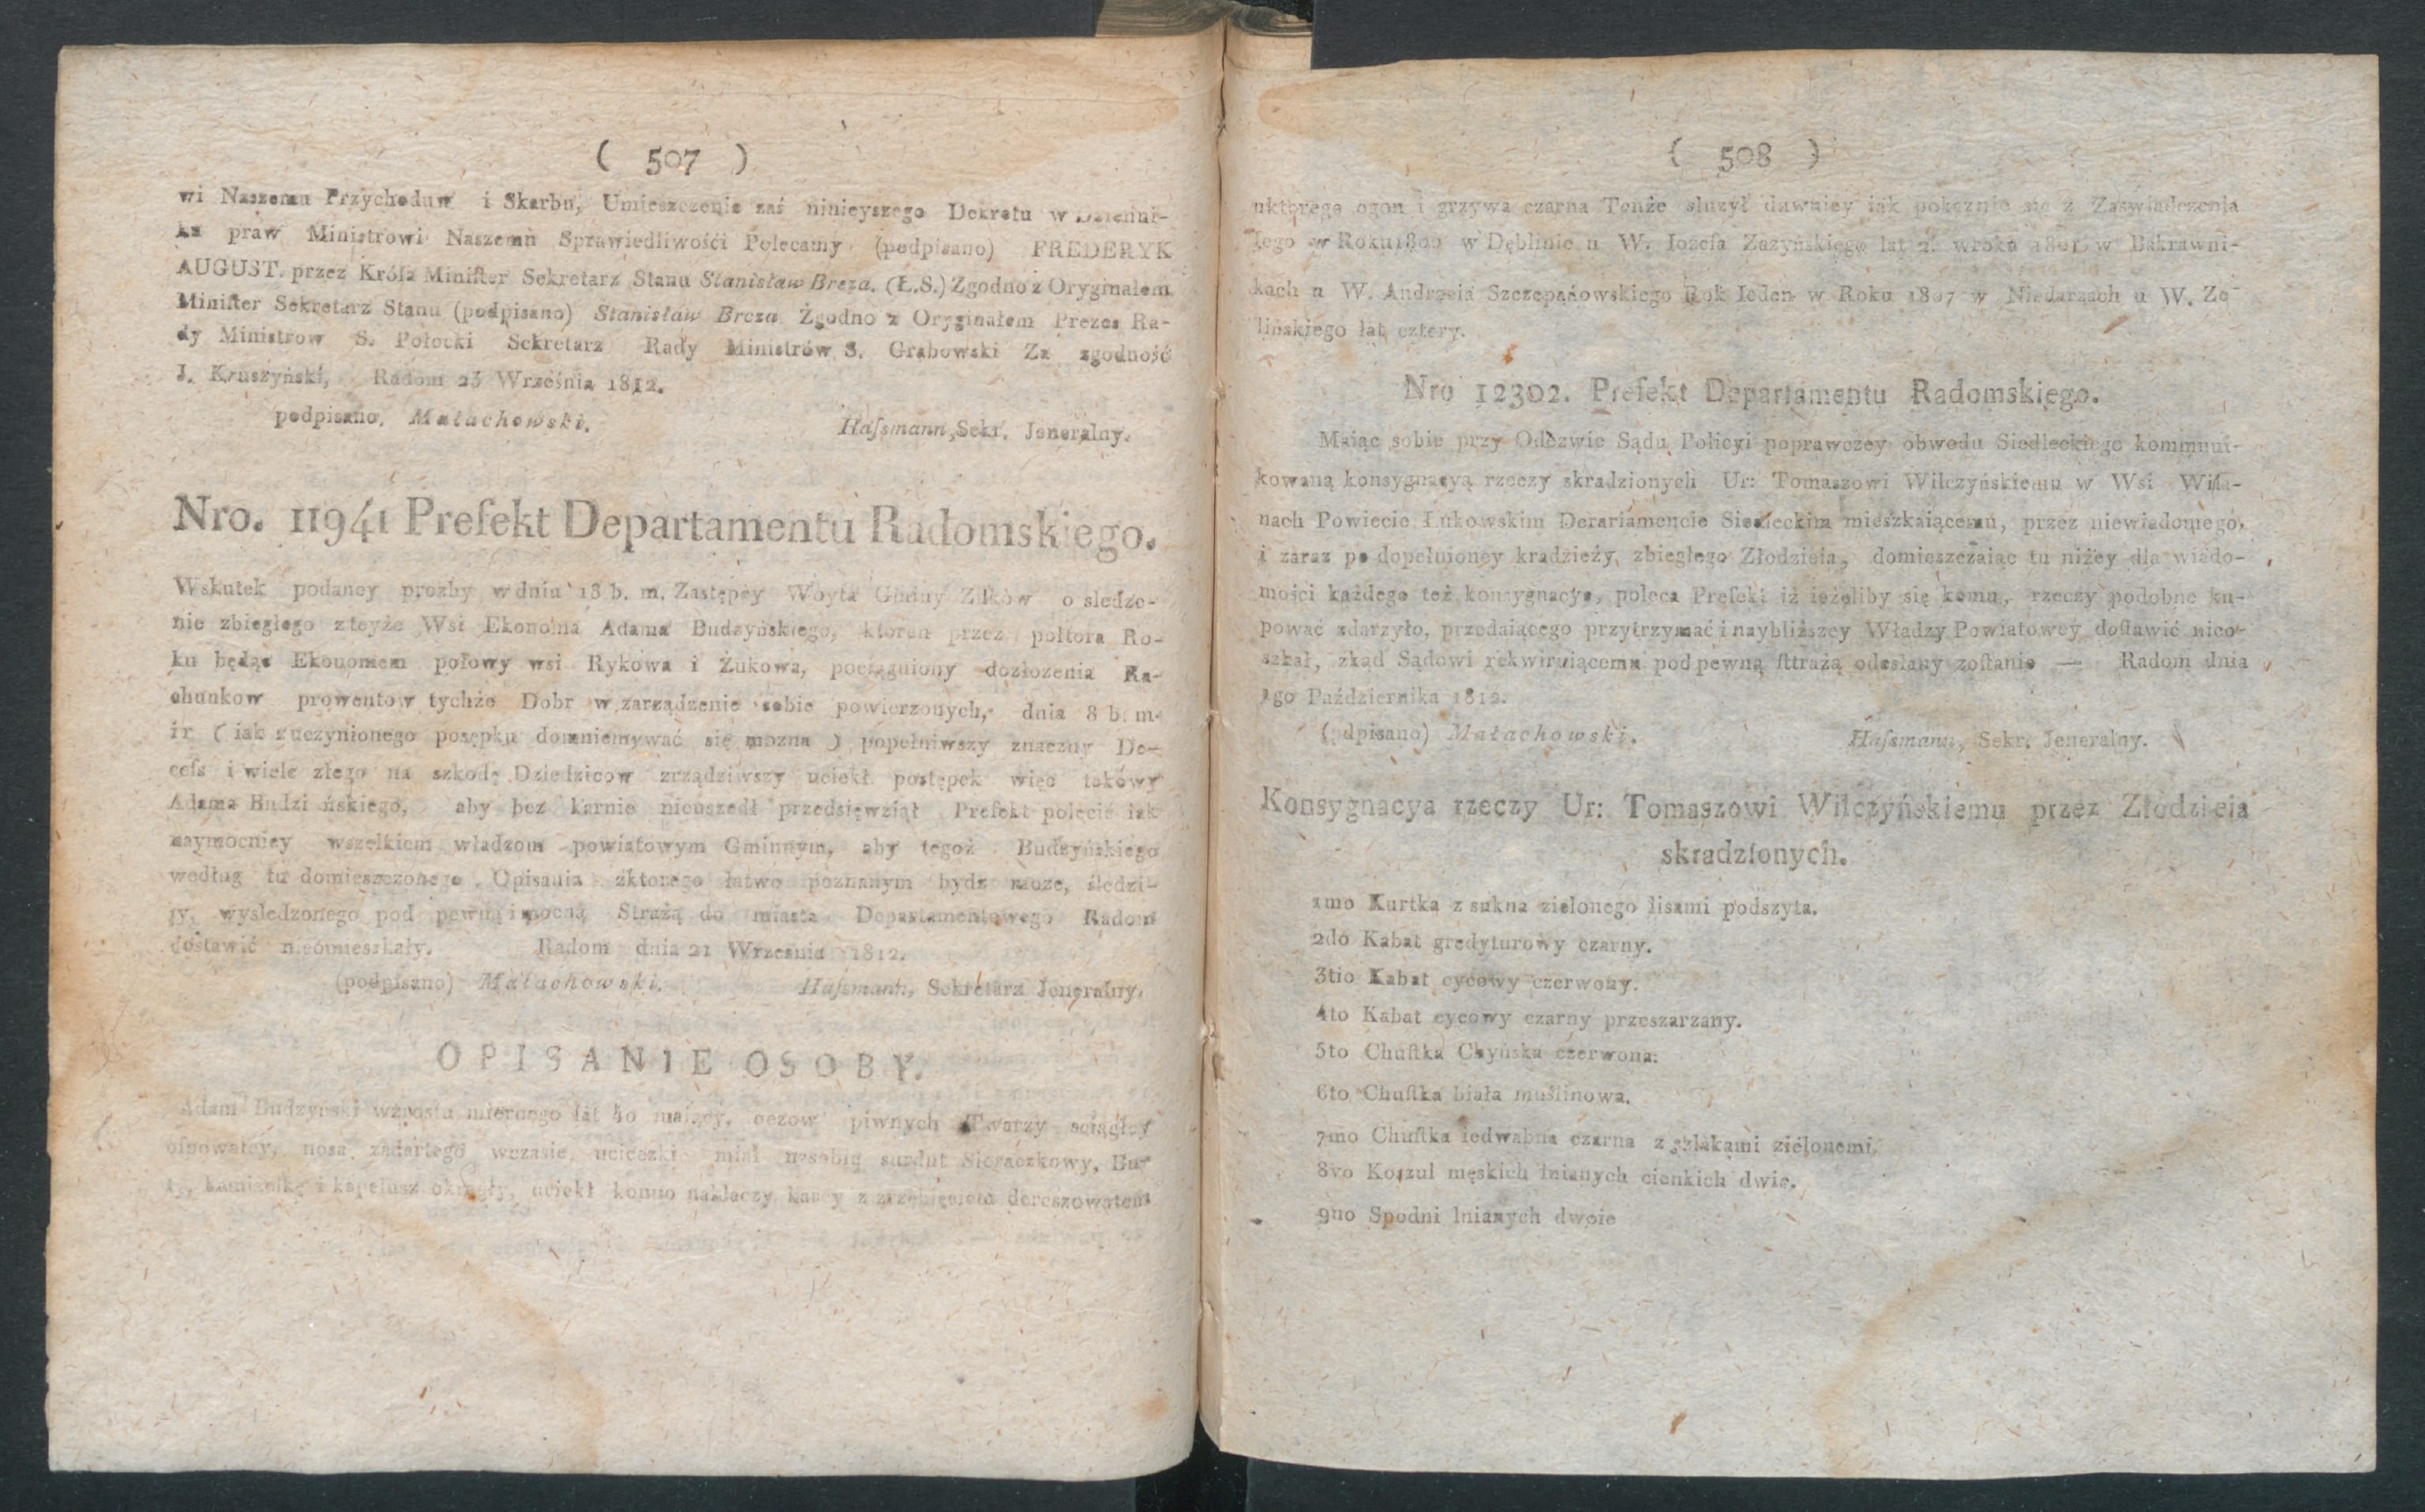 ( 507 )
wi Naszemu Przychodów i Skarbu, Umieszczenie zaś ninieyszego Dekretu w Dzienni-
ku praw Ministrowi Naszemu Sprawiedliwośći Polecamy (podpisano) FREDERYK
AUGUST. przez Króla Miniſter Sekretarz Stanu Stanisław Breza. (Ł.S.) Zgodno z Oryginałem
Miniſter Sekretarz Stanu (podpisano) Stanisław Breza Zgodno z Oryginałem Prezes Ra-
dy Ministrow S. Potocki Sekretarz Rady Ministrów S. Grabowski Za zgodność
J. Kruszyński, Radom 23 Września 1812.
podpisano, Małachowski. Haſsmann, Sekr. Jeneralny.
Nro. 11941 Prefekt Departamentu Radomskiego.
Wskutek podaney prozby w dniu 18 b. m. Zastępcy Woyta Gminy o sledze-
nie zbiegłego zteyże Wsi Ekonoma Adama Budzyńskiego, ktoren przez połtora Ro-
ku będąc Ekonomem połowy wsi Rykowa i Żukowa, pociągniony dozłozenia Ra-
chunkow prowentow tychże Dobr w zarządzenie sobie powierzonych, dnia 8 b. m.
ir ( iak zuczynionego postępku domniemywać się mozna ) popełniwszy znaczny De-
ceſs i wiele złego na szkodę Dziedzicow zrządziwszy uciekł. postępek więc takowy
Adama Budzi ńskiego, aby bez karnie nieuszedł przedsięwziął Prefekt polecić iak
naymocniey wszelkiem władzom powiatowym Gminnym, aby tegoż Budzyńskiego
według tu domieszczonego Opisania zktorego łatwo poznanym bydź może, śledzi-
ły, wysledzonego pod pewną i mocną Strażą do miasta Departamentowego Radom
dostawić nieomieszkały. Radom dnia 21 Wrzesnia 1812.
(podpisano) Małachowski. Haſsmann, Sekretarz Jeneralny.
OPISANIE OSOBY.
Adam Budzyński wzrostu miernego lat 40 maiący, oczow piwnych Twarzy sciągłey
ospowatey, nosa zadartego wczasie ucieczki miał nasobie surdut Sieraczkowy, Bu-
ty, kamizelkę i kapelusz okrągły, uciekł konno naklaczy karey z zrzebięciem dereszowatem
( 508 )
uktórego ogon i grzywa czarna Tenże służył dawniey iak pokaznie się z Zaswiadczenia
Iego w Roku 1800 w Dęblinie u W. Iozefa Zazyńskiego lat 2. wroku 1801. w Bakrawni-
kach u W. Andrzeia Szczepanowskiego Rok Ieden w Roku 1807 w Niedarzach u W. Ze-
lińskiego lat cztery.
Nro 12302. Prefekt Departamentu Radomskiego.
Maiąc sobie przy Odezwie Sądu Policyi poprawczey obwodu Siedleckiego kommuni-
kowaną konsygnacyą rzeczy skradzionych Ur: Tomaszowi Wilczyńskiemu w Wsi Wiſni-
nach Powiecie Łukowskim Derariamencie Siedleckim mieszkaiącemu, przez niewiadomego,
i zaraz po dopełnioney kradzieży, zbiegłego Złodzieia, domieszczaiąc tu niżey dla wiado-
mości każdego też konsygnacye, poleca Prefekt iż ieżeliby się komu, rzeczy podobne ku-
pować zdarzyło, przedaiącego przytrzymać i naybliższey Władzy Powiatowey doſtawić nieo-
szkał, zkąd Sądowi rekwiruiącemu pod pewną ſttrażą odesłany zoſtanie — Radom dnia
1go Października 1812.
(podpisano) Małachowski. Haſsmann, Sekr. Jeneralny.
Konsygnacya rzeczy Ur: Tomaszowi Wilczyńskiemu przez Złodzieia
skradzionych.
1mo Kurtka z sukna zielonego lisami podszyta.
2do Kabat gredyturowy czarny.
3tio Kabat cycowy czerwony.
4to Kabat cycowy czarny przeszarzany.
5to Chuſtka Chyńska czerwona.
6to Chuſtka biała muślinowa.
7mo Chuſtka iedwabna czarna z szlakami zielonemi.
8vo Koszul męskich lnianych cienkich dwie.
9no Spodni lnianych dwoie